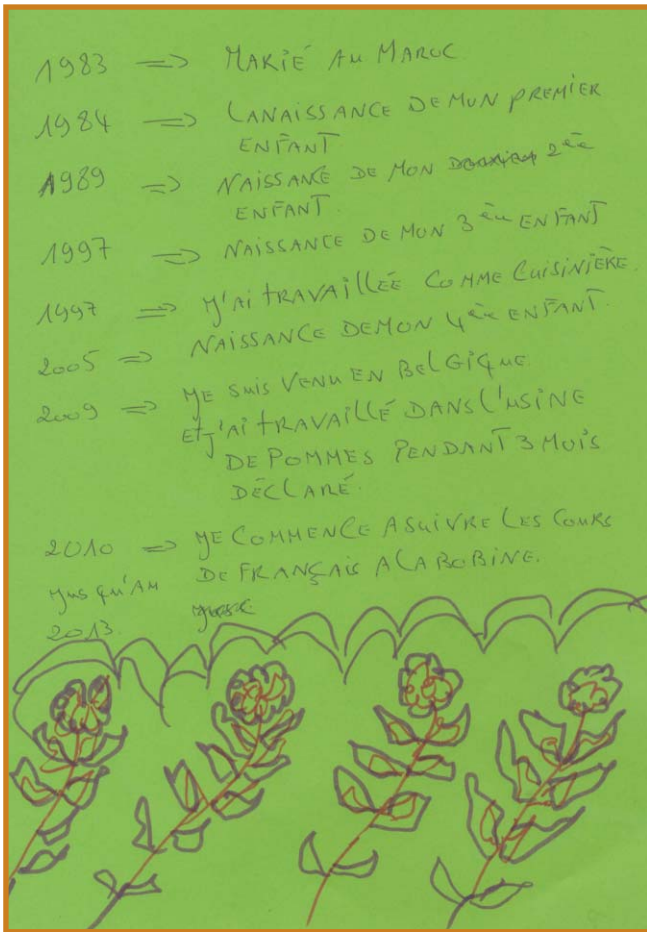 1983 => MARIÉ AU MAROC
1984 => LANAISSANCE DE MON PREMIER
ENFANT
1989 => NAISSANCE DE MON 2ème
ENFANT.
1997 => NAISSANCE DE MON 3ème ENFANT
1997 => J'AI TRAVAILLÉE COMME CUISINIÈRE.
2005 => NAISSANCE DEMON 4ème ENFANT.
2009 => JE SUIS VENU EN BELGIQUE
ET J'AI TRAVAILLÉ DANS L'USINE
DE POMMES PENDANT 3 MOIS
DÉCLARÉ.
2010 => JE COMMENCE A SUIVRE LES COURS
JUSQU'AU DE FRANÇAIS A LA BOBINE.
2013.